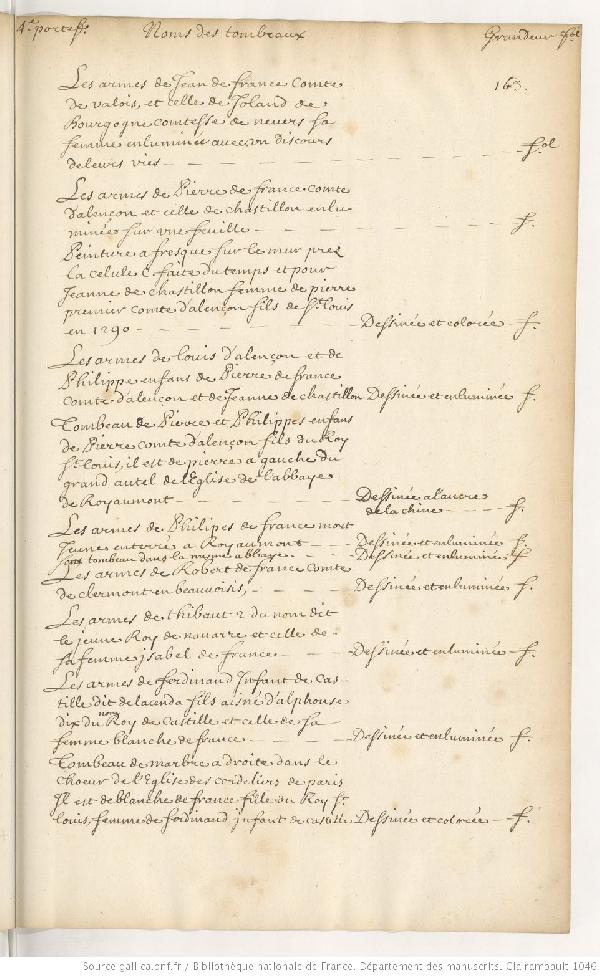 4e. portef. Noms des tombeaux Grandeur fol
163.
Les armes de Jean de france Comte
de valois, et celle de Ioland de
Bourgogne comtesse de nevers sa
femme enluminée avec un discours
de leurs vies — fol
Les armes de Pierre de france comte
d'alençon et celle de chastillon enlu
minée sur une feuille — f.
Peinture a fresque sur le mur prez
la celule C faite du temps et pour
Jeanne de chastillon femme de pierre
premier comte d'alençon fils de St. louis
en 1290 — Dessinée et colorée — f.
Les armes de louis d'alençon et de
Philippe enfans de Pierre de france
comte d'alençon et de Jeanne de chastillon Dessinée et enluminée f.
Tombeau de Pierre et Philippes enfans
de Pierre comte d'alençon fils du Roy
St. louis, il est de pierre a gauche du
grand autel de l'Eglise de l'abbaye
de Royaumont — Dessinée a l'ancre
de la chine — f.
Les armes de Philipes de france mort
jeune enterré a Royaumont — Dessinée et enluminée f.
son tombeau dans la mesme abbaye — Dessinée et enluminée f.
Les armes de Robert de france comte
de clermont en beauvoisis, — Dessinée et enluminée f.
Les armes de thibaut 2 du nom dit
le jeune Roy de navarre et celle de
sa femme isabel de france — Dessinée et enluminée — f.
Les armes de ferdinand Infant de cas
tille dit de lacerda fils aisné d'alphonse
dix du nom Roy de Castille et celle de sa
femme blanche de france — Dessinée et enluminée f.
Tombeau de marbre a droite dans le
choeur de l'Eglise des cordeliers de paris
Il est de blanche de france fille du Roy St.
louis, femme de ferdinand infant de castille Dessinée et colorée — f.
Source gallica.bnf.fr / Bibliothèque nationale de France. Département des manuscrits. Clairambault 1046